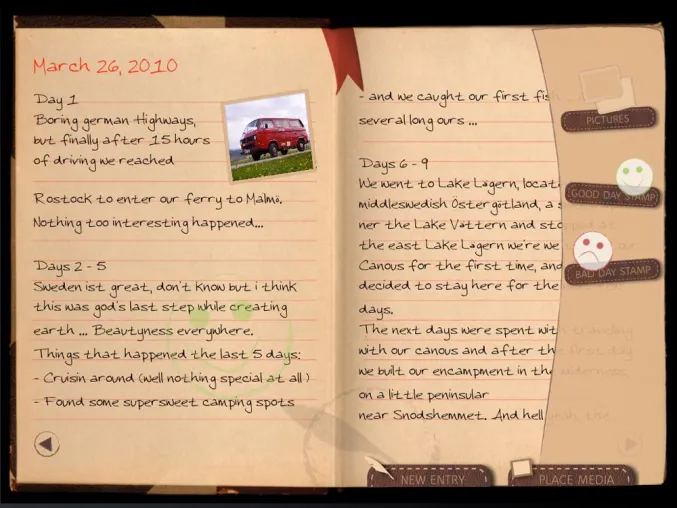 March 26, 2010
Day 1
Boring german Highways,
but finally after 15 hours
of driving we reached
Rostock to enter our ferry to Malmö.
Nothing too interesting happened...
Days 2 - 5
Sweden ist great, don't know but i think
this was god's last step while creating
earth ... Beautyness everywhere.
Things that happened the last 5 days:
- Cruisin around (well nothing special at all)
- Found some supersweet camping spots
- and we caught our first fish
several long ours ...
Days 6 - 9
We went to Lake Lagern, locat
middleswedish Östergötland, a s
ner the Lake Vattern and stopped at
the east Lake Lagern we're we our
Canous for the first time, and
decided to stay here for the
days.
The next days were spent with traveling
with our canous and after the first day
we built our encampment in the wilderness,
on a little peninsular
near Snodshemmet. And hell yeah, the
PICTURES
GOOD DAY STAMP
BAD DAY STAMP
NEW ENTRY
PLACE MEDIA